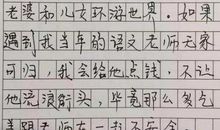 老婆和儿女环游世界。如果
遇到我当年的语文老师无家
可归，我会给他点钱，不让
他流浪街头，毕竟那么多乞
老师在一起不安全